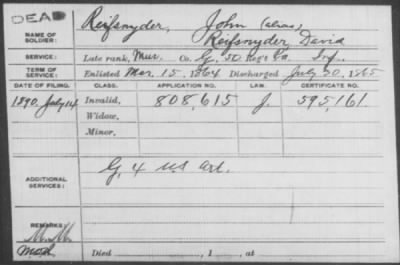 DEAD
NAME OF SOLDIER: Reifsnyder, John (alias)
Reifsnyder, David
SERVICE: Late rank, Mus. Co. G, 50 Reg't Pa. Inf.
TERM OF SERVICE: Enlisted Mar. 15, 1864 Discharged July 30, 1865
DATE OF FILING. CLASS. APPLICATION NO. LAW. CERTIFICATE NO.
1890. July 14 Invalid, 808,615 J. 595,161
Widow,
Minor,
ADDITIONAL SERVICES: G, 4 U.S. Art.
REMARKS:
Died , 1 , at